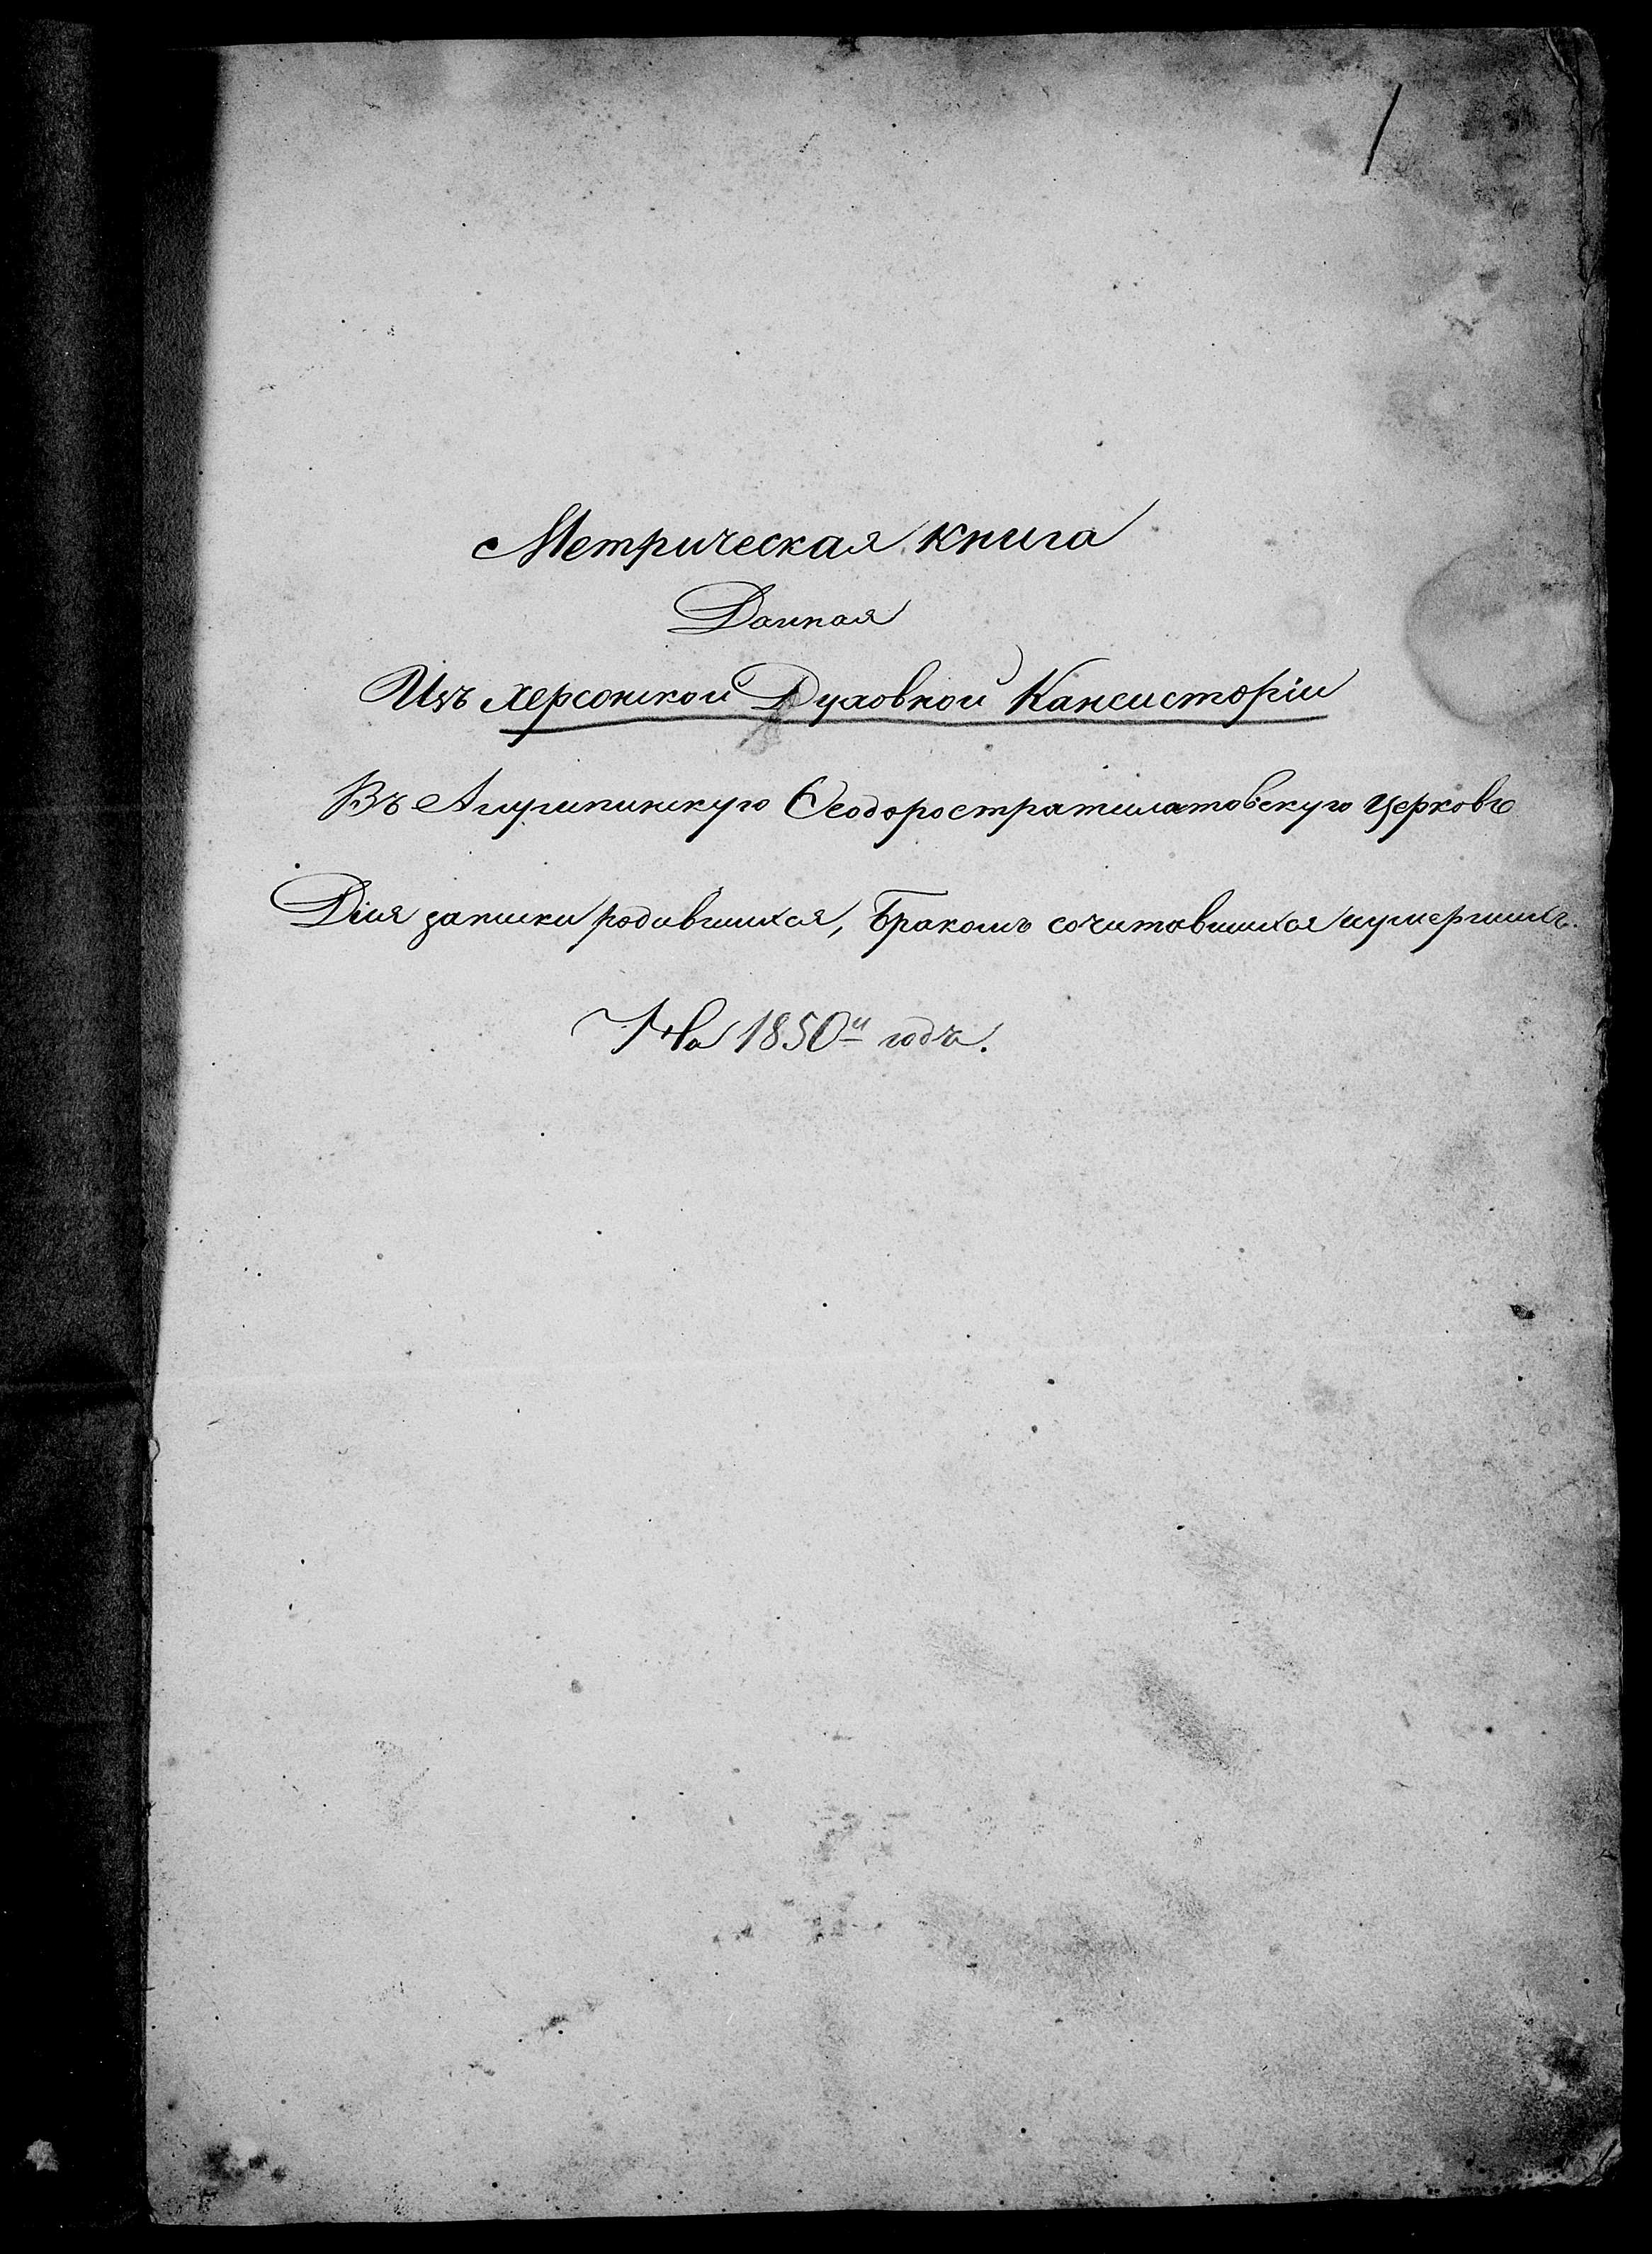 1
Метрическая книга
Данная
Изъ херсонской Духовной Кансисторіи
Въ Алуштинскую Ѳеодоростратилатовскую церковь
Для записки родившихся, бракомъ сочитавшихся и умершихъ.
На 1850й годъ.